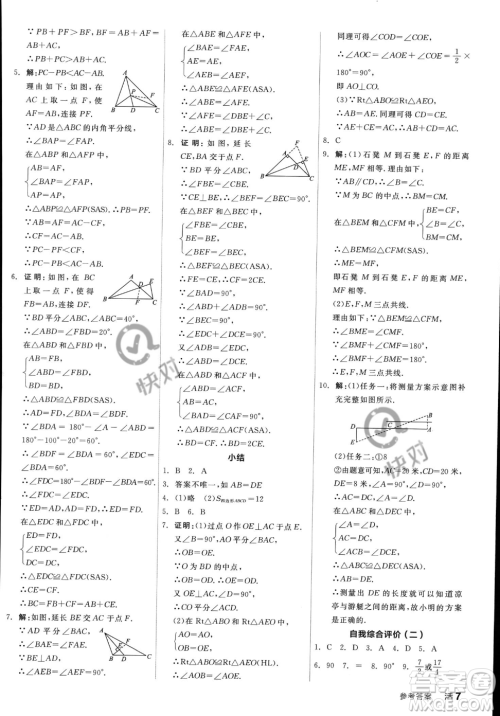 ∴AB+AF=PB+PF.
∴AF+BF=PB+PF.
∴PB+AF<PB+PF.
∴PF>AC.
5. 解:PC-PB<AC-AB.
理由如下:如图,在
AC上取一点F,使
AF=AB,连接PF.
∵AD是△ABC的内角平分线,
∴∠BAP=∠FAP.
在△ABP和△AFP中,
AB=AF,
∠BAP=∠FAP,
AP=AP,
∴△ABP≌△AFP(SAS).∴PB=PF.
∵PC-PF<CF,CF=AC-AF,
∴PC-PF<AC-AF.
∴PC-PB<AC-AB.
6. 证明:如图,在BC
上取一点F,使得
BF=AB,连接DF.
∵BD平分∠ABC,∠ABC=40°,
∴∠ABD=∠FBD=20°.
在△ABD和△FBD中,
AB=FB,
∠ABD=∠FBD,
BD=BD,
∴△ABD≌△FBD(SAS).
∴AD=FD,∠ADB=∠BDF.
∵∠BDA=180°-∠A-∠ABD=
180°-100°-20°=60°,
∴∠BDF=∠BDA=60°.
∠EDC=∠BDA=60°.
∴∠FDC=180°-60°-60°=60°.
∴∠EDC=∠FDC.
在△EDC和△FDC中,
ED=FD,
∠EDC=∠FDC,
DC=DC,
∴△EDC≌△FDC(SAS).
∴∠DCE=∠DCB.
7. 解:如图,延长BE交AC于点F.
∵AD平分∠BAC,
∴∠BAE=∠FAE.
∵BE⊥AD,
∴∠BEA=∠FEA.
在△ABE和△AFE中,
∠BAE=∠FAE,
AE=AE,
∠BEA=∠FEA,
∴△ABE≌△AFE(ASA).
∴∠ABE=∠AFE.
∵∠AFE=∠DBE+∠C,
∴∠ABE=∠DBE+∠C.
8. 证明:如图,延长
CE,BA交于点F.
∵BD平分∠ABC,
∴∠FBE=∠CBE.
∵CE⊥BD,
∴∠BEF=∠BEC=90°.
在△BEF和△BEC中,
∠FBE=∠CBE,
BE=BE,
∠BEF=∠BEC,
∴△BEF≌△BEC(ASA).
∴EF=EC.∴CF=2CE.
∵∠BAD=∠CAF=90°,
∴∠ABD+∠ADB=90°.
∵∠DEC=90°,
∴∠EDC+∠DCE=90°.
∵∠ADB=∠EDC,
∴∠ABD=∠ACF.
在△BAD和△CAF中,
∠ABD=∠ACF,
AB=AC,
∠BAD=∠CAF,
∴△BAD≌△CAF(ASA).
∴BD=CF.∴BD=2CE.
小结
1. B 2. A
3. 答案不唯一,如AB=AC
4. (1)略 (2)S四边形ABCD=12
5. B 6. B
7. 证明:(1)过点O作OE⊥AC于点E.
∵∠ABD=90°,OA平分∠BAC,
∴OB=OE.
∵O为BD的中点,
∴OB=OD.
∴OE=OD.
∴OC平分∠ACD.
(2)在Rt△ABO和Rt△AEO中,
AO=AO,
OB=OE,
∴Rt△ABO≌Rt△AEO(HL).
∴∠AOB=∠AOE.
同理可得∠COD=∠COE.
∴∠AOC=∠AOE+∠COE=1/2×
180°=90°,
即AO⊥OC.
(3)∵Rt△ABO≌Rt△AEO,
∴AB=AE.
同理可得CD=CE.
∵AE+CE=AC,∴AB+CD=AC.
8. C
9. 解:(1)石凳M到石凳E,F的距离
ME,MF相等.理由如下:
∵AB∥CD,∴∠B=∠C.
∵M为BC的中点,∴BM=CM.
在△BEM和△CFM中,
BE=CF,
∠B=∠C,
BM=CM,
∴△BEM≌△CFM(SAS).
∴ME=MF,
即石凳M到石凳E,F的距离ME,
MF相等.
(2)石凳E,M,F三点共线.
理由:由(1)得△BEM≌△CFM,
∴∠BME=∠CMF.
∵∠BMF+∠CMF=180°,
∴∠BMF+∠BME=180°.
∴E,M,F三点共线.
10. 解:(1)任务一:将测量方案示意图补
充完整如图所示.
(2)任务二:①8
②由题意可知,AC=20米,CD=20
米,DE=8米,∠A=∠CDE=90°,
∴AC=DC.
在△ABC和△DEC中,
∠A=∠CDE,
AC=DC,
∠ACB=∠DCE,
∴△ABC≌△DEC(ASA).
∴AB=DE.
∴小明测得DE的长度就是凉
亭与游艇之间的距离,故小明的方案
可行.
自我综合评价(二)
1. C 2. D 3. A 4. C 5. B
6. 90 7. = 8. 90° 9. 7/9或17/4
参考答案 活7
快对
快对